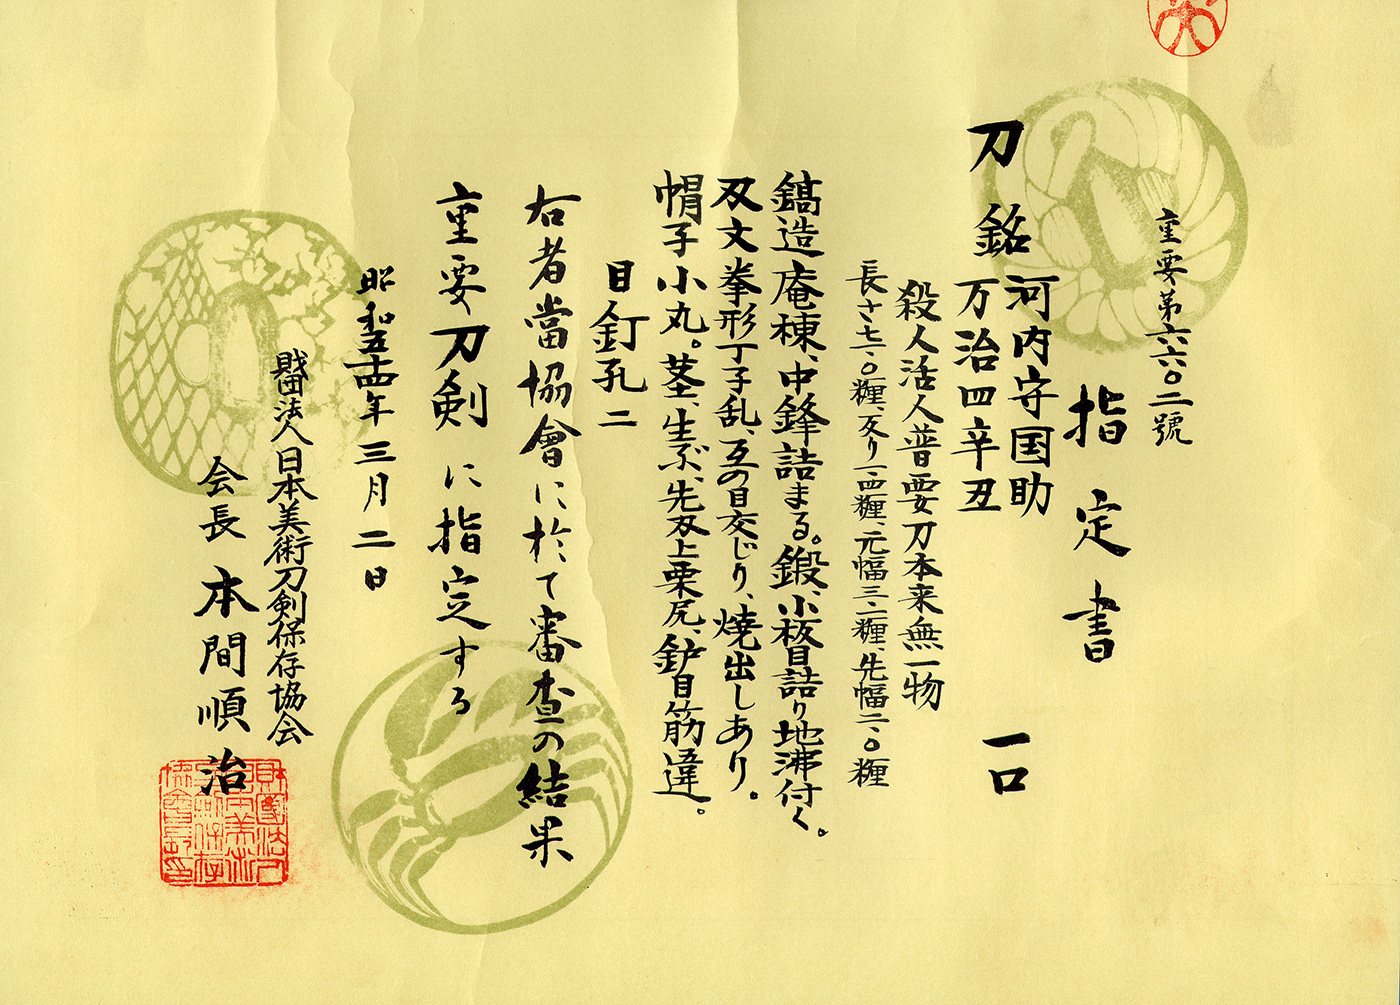 重要第六六〇二號
指定書
刀 銘 河内守国助 一口
万治四辛丑
殺人活人普要刀本来無一物
長さ七一・〇糎、反り一・四糎、元幅三・二糎、先幅二・〇糎
鎬造庵棟、中鋒詰まる。鍛、小板目詰り地沸付く。
刄文拳形丁子乱、互の目交じり、焼出しあり。
帽子小丸。茎、生ぶ、先刄上栗尻、鈩目筋違。
目釘孔二
右者當協會に於て審査の結果
重要刀剣に指定する
昭和五十四年三月二日
財団法人日本美術刀剣保存協会
会長 本間順治